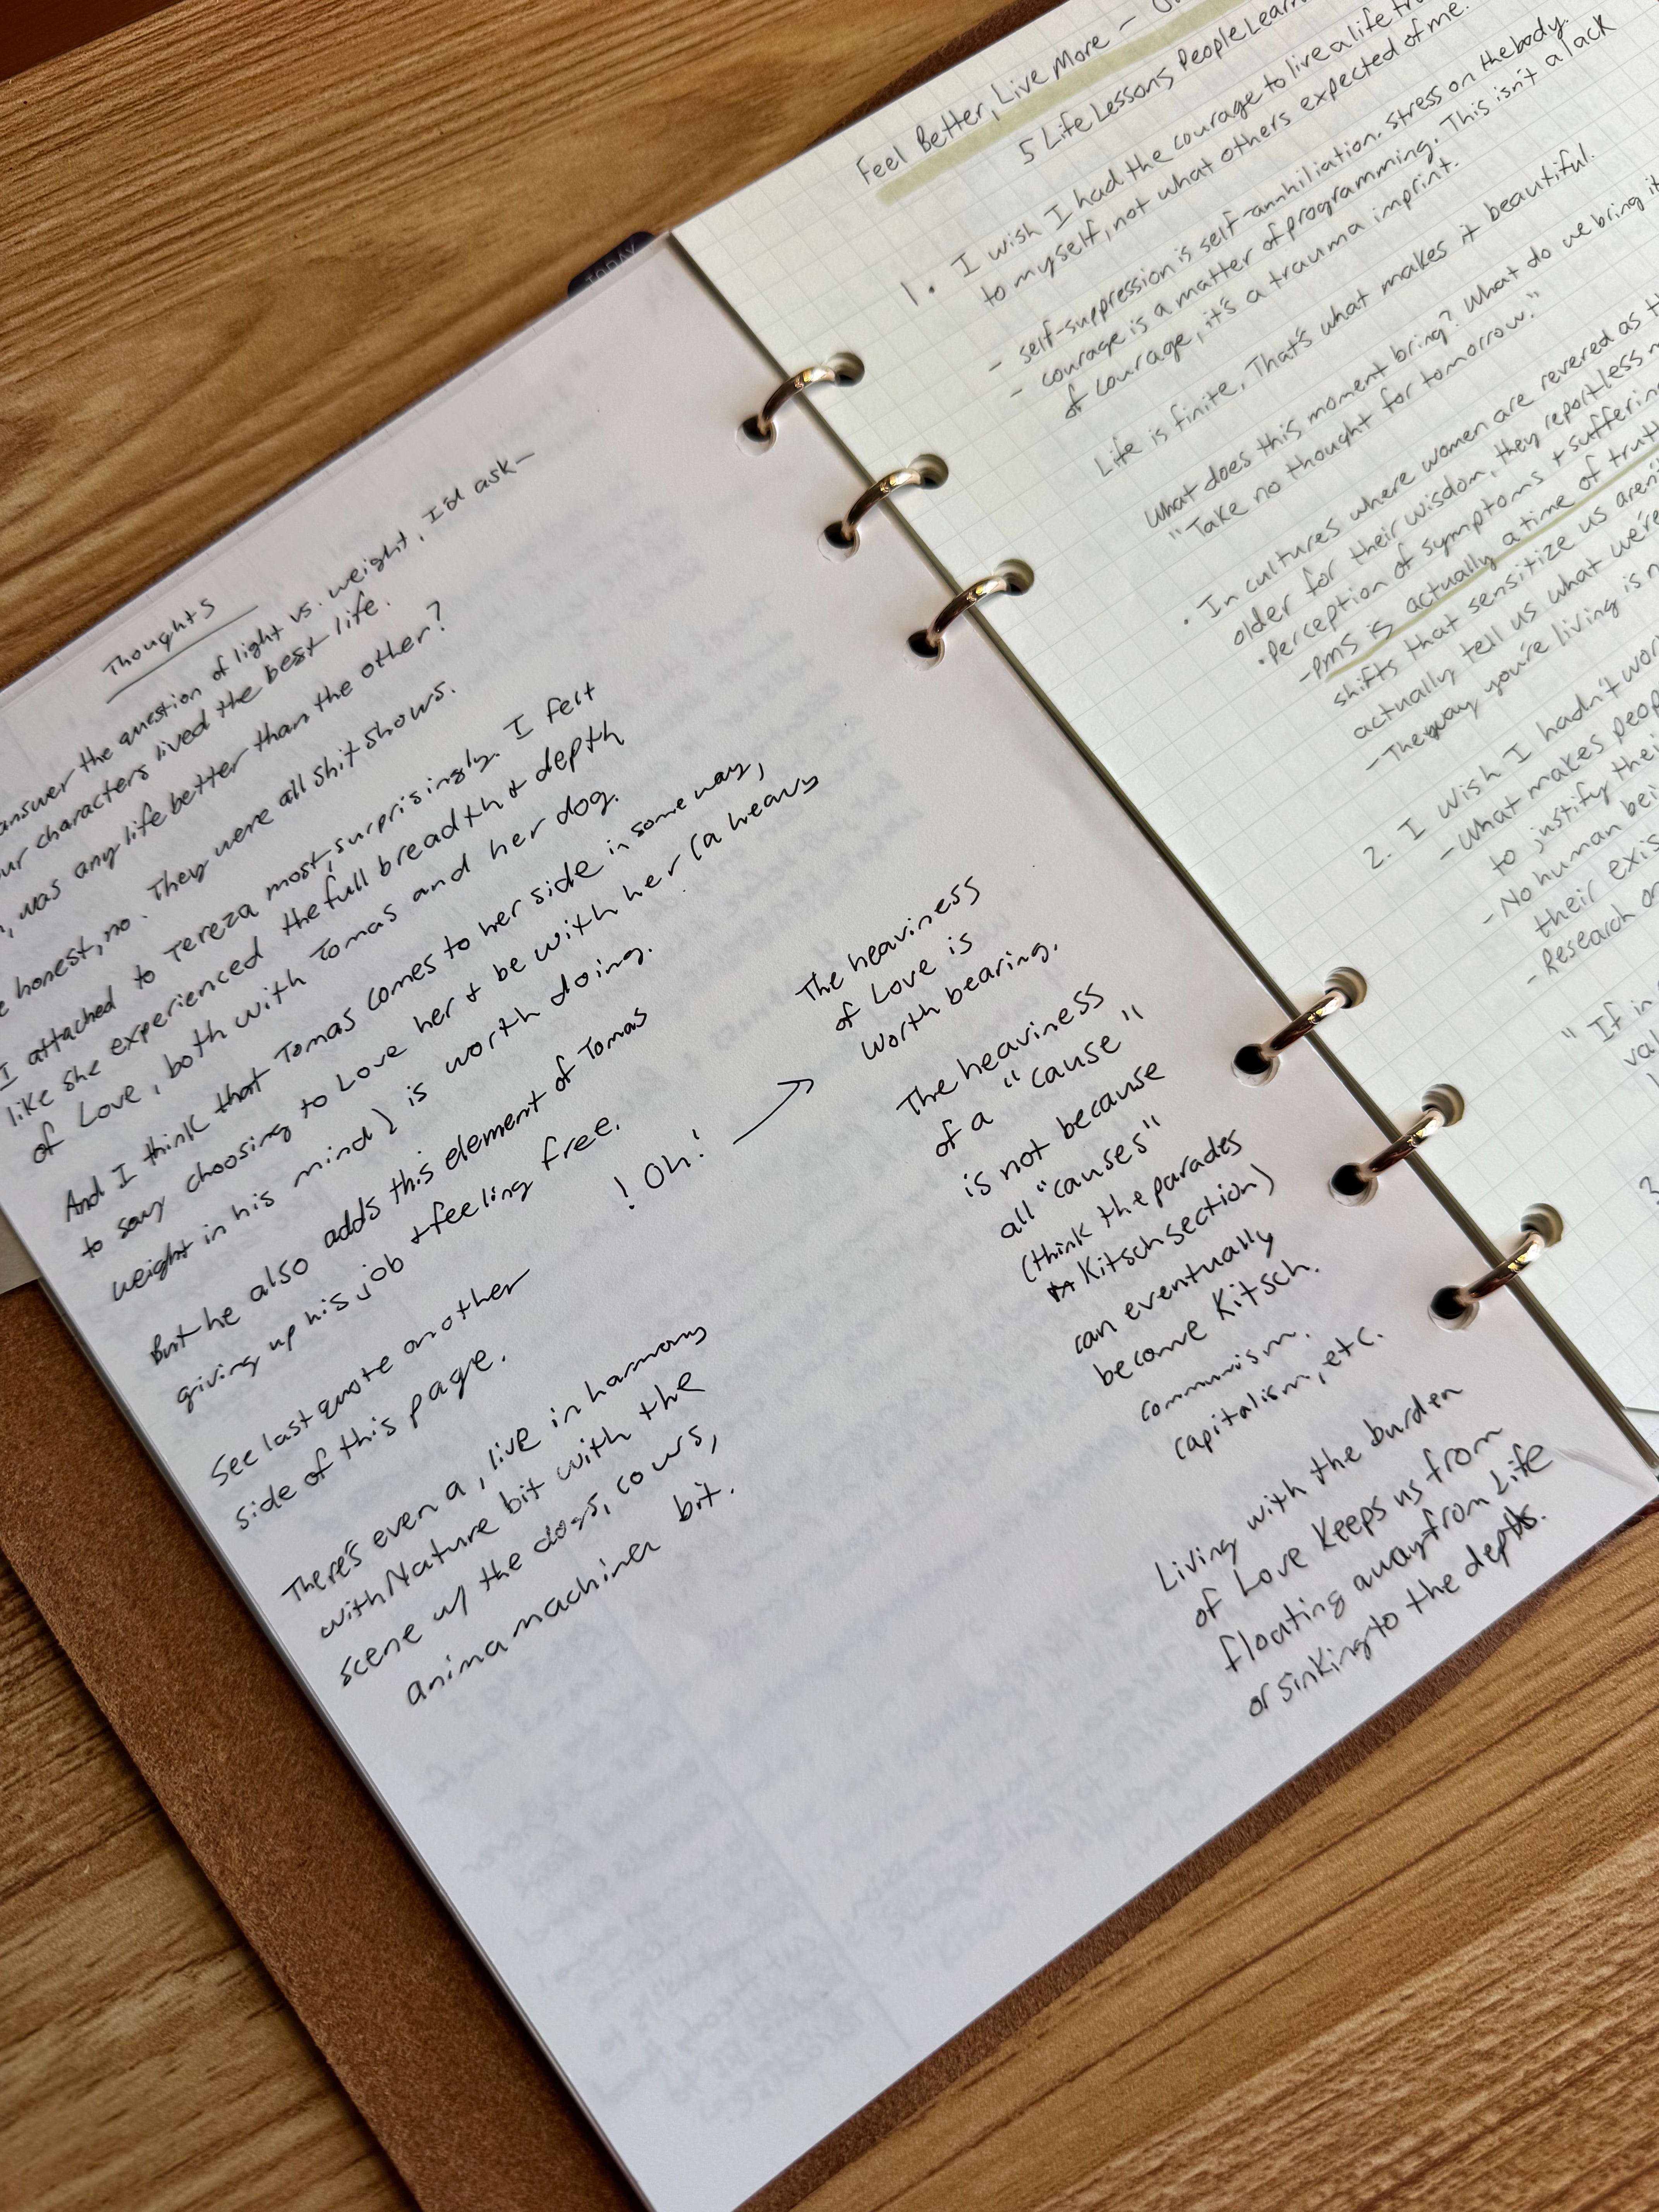 Thoughts
answer the question of light vs. weight, I'd ask—
our characters lived the best life.
was any life better than the other?
honest, no. They were all shit shows.
I attached to Tereza most, surprisingly. I felt
like she experienced the full breadth & depth
of Love, both with Tomas and her dog.
And I think that Tomas comes to her side in some way,
to say choosing to Love her & be with her (a heavy
weight in his mind) is worth doing.
But he also adds this element of Tomas
giving up his job & feeling free.
! Oh! →
See last quote on other
side of this page.
There's even a, live in harmony
with Nature bit with the
scene w/ the dogs, cows,
anima machina bit.
The heaviness
of Love is
worth bearing.
The heaviness
of a "cause"
is not because
all "causes"
(think the parades
Kitsch section)
can eventually
become Kitsch.
communism.
capitalism, etc.
Living with the burden
of Love keeps us from
floating away from Life
or sinking to the depths.
TODAY
Feel Better, Live More –
5 Life Lessons People Learn
1. I wish I had the courage to live a life
to myself, not what others expected of me.
- self-suppression is self-annhiliation. Stress on the body.
- courage is a matter of programming. This isn't a lack
of courage, it's a trauma imprint.
Life is finite, That's what makes it beautiful.
What does this moment bring? What do we bring
"Take no thought for tomorrow."
• In cultures where women are revered as
older for their wisdom, they report less
• Perception of symptoms & suffering
- PMS is actually a time of truth
shifts that sensitize us aren't
actually tell us what we're
- The way you're living is
2. I wish I hadn't
- What makes
to justify their
- No human
their
- Research
"If in
3